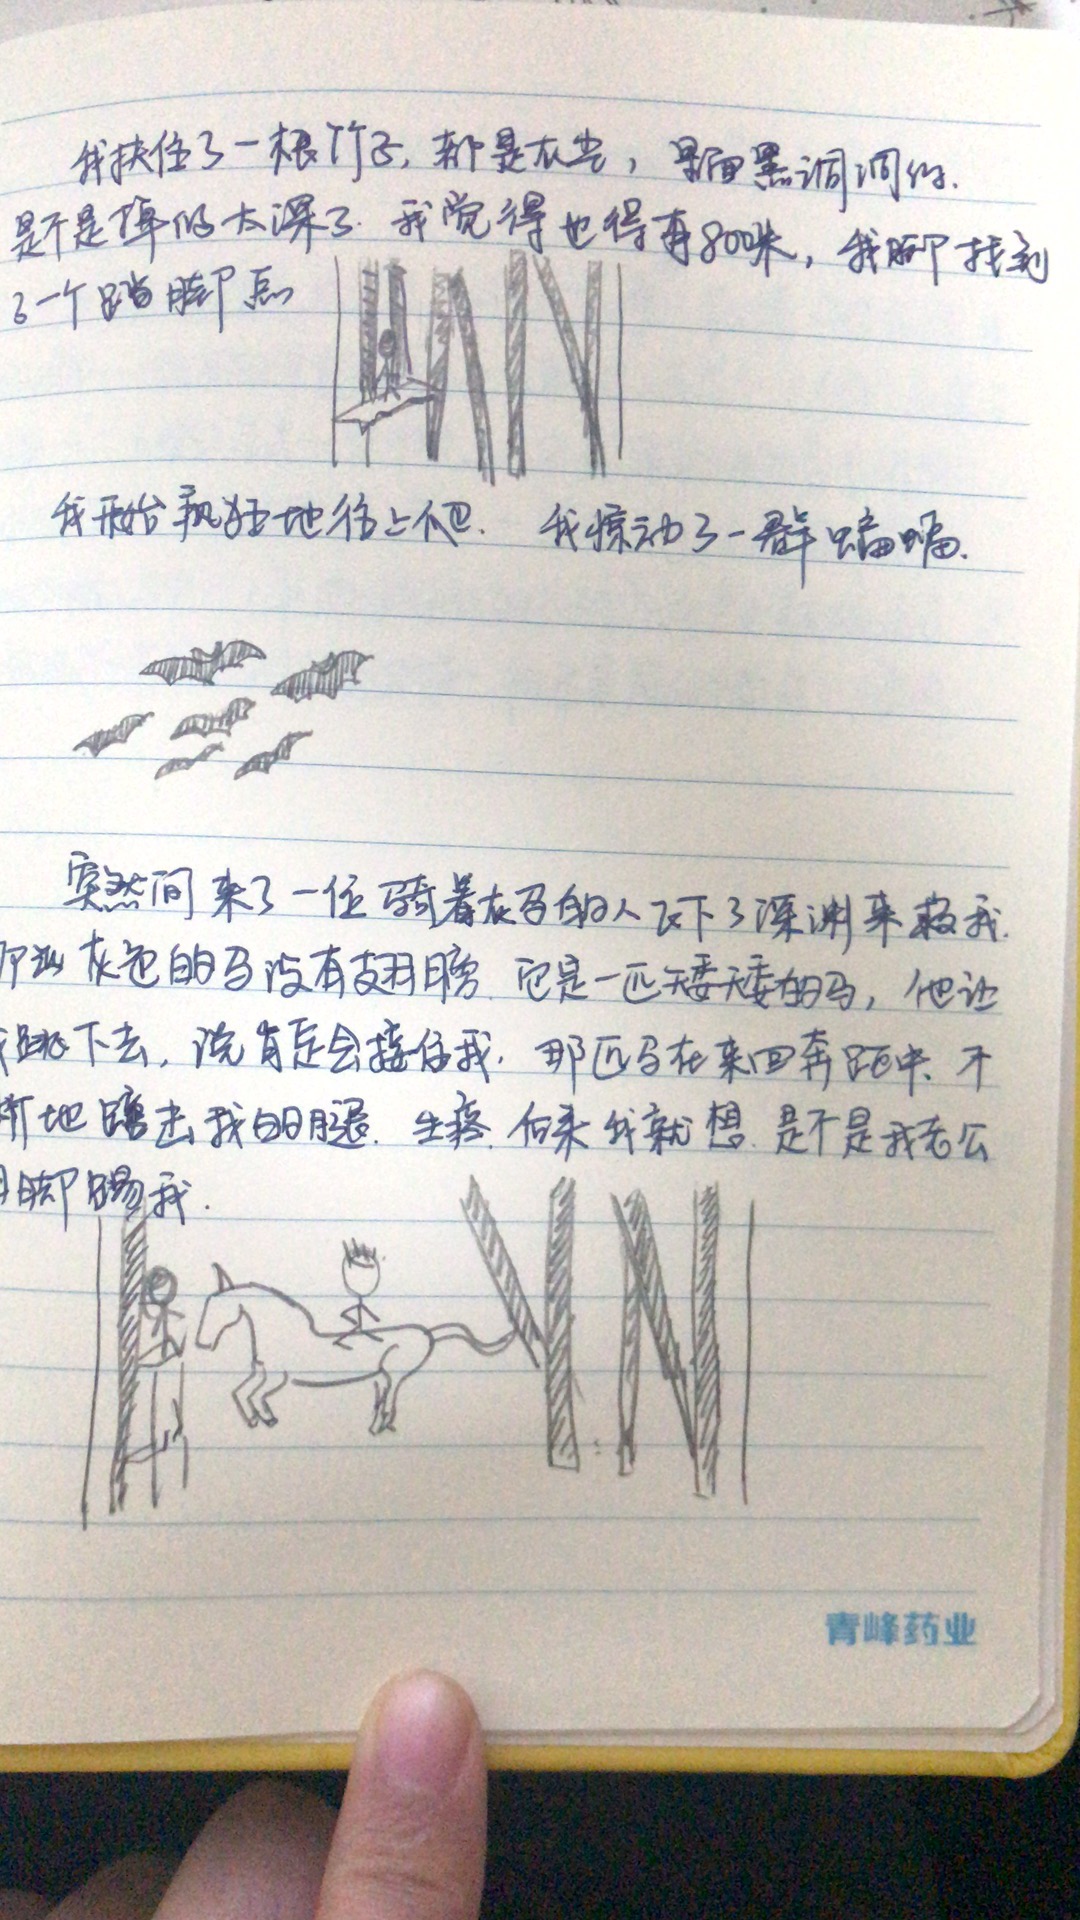 我扶住了一根竹子，都是灰尘，里面黑洞洞的.
是不是掉的太深了.我觉得也得有800米，我脚找到
了一个踏脚点
我开始疯狂地往上爬.我惊动了一群蝙蝠.
突然间来了一位骑着灰马的人飞下了深渊来救我.
灰色的马没有翅膀.它是一匹矮矮的马，他让
我跳下去，说肯定会接住我.那匹马在来回奔跑中、不
断地蹭去我的腿.生疼.后来我就想.是不是我老公
用脚踢我.
青峰药业